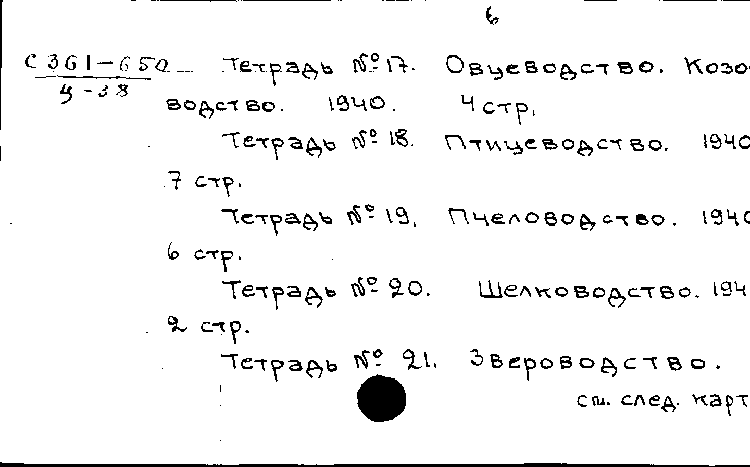 6
С 361-650 Тетрадь № 17. Овцеводство. Козо
4-38
водство. 1940. 4 стр.
Тетрадь № 18. Птицеводство. 1940
7 стр.
Тетрадь № 19. Пчеловодство. 1940
6 стр.
Тетрадь № 20. Шелководство. 194
2 стр.
Тетрадь № 21. Звероводство.
см. след. карт